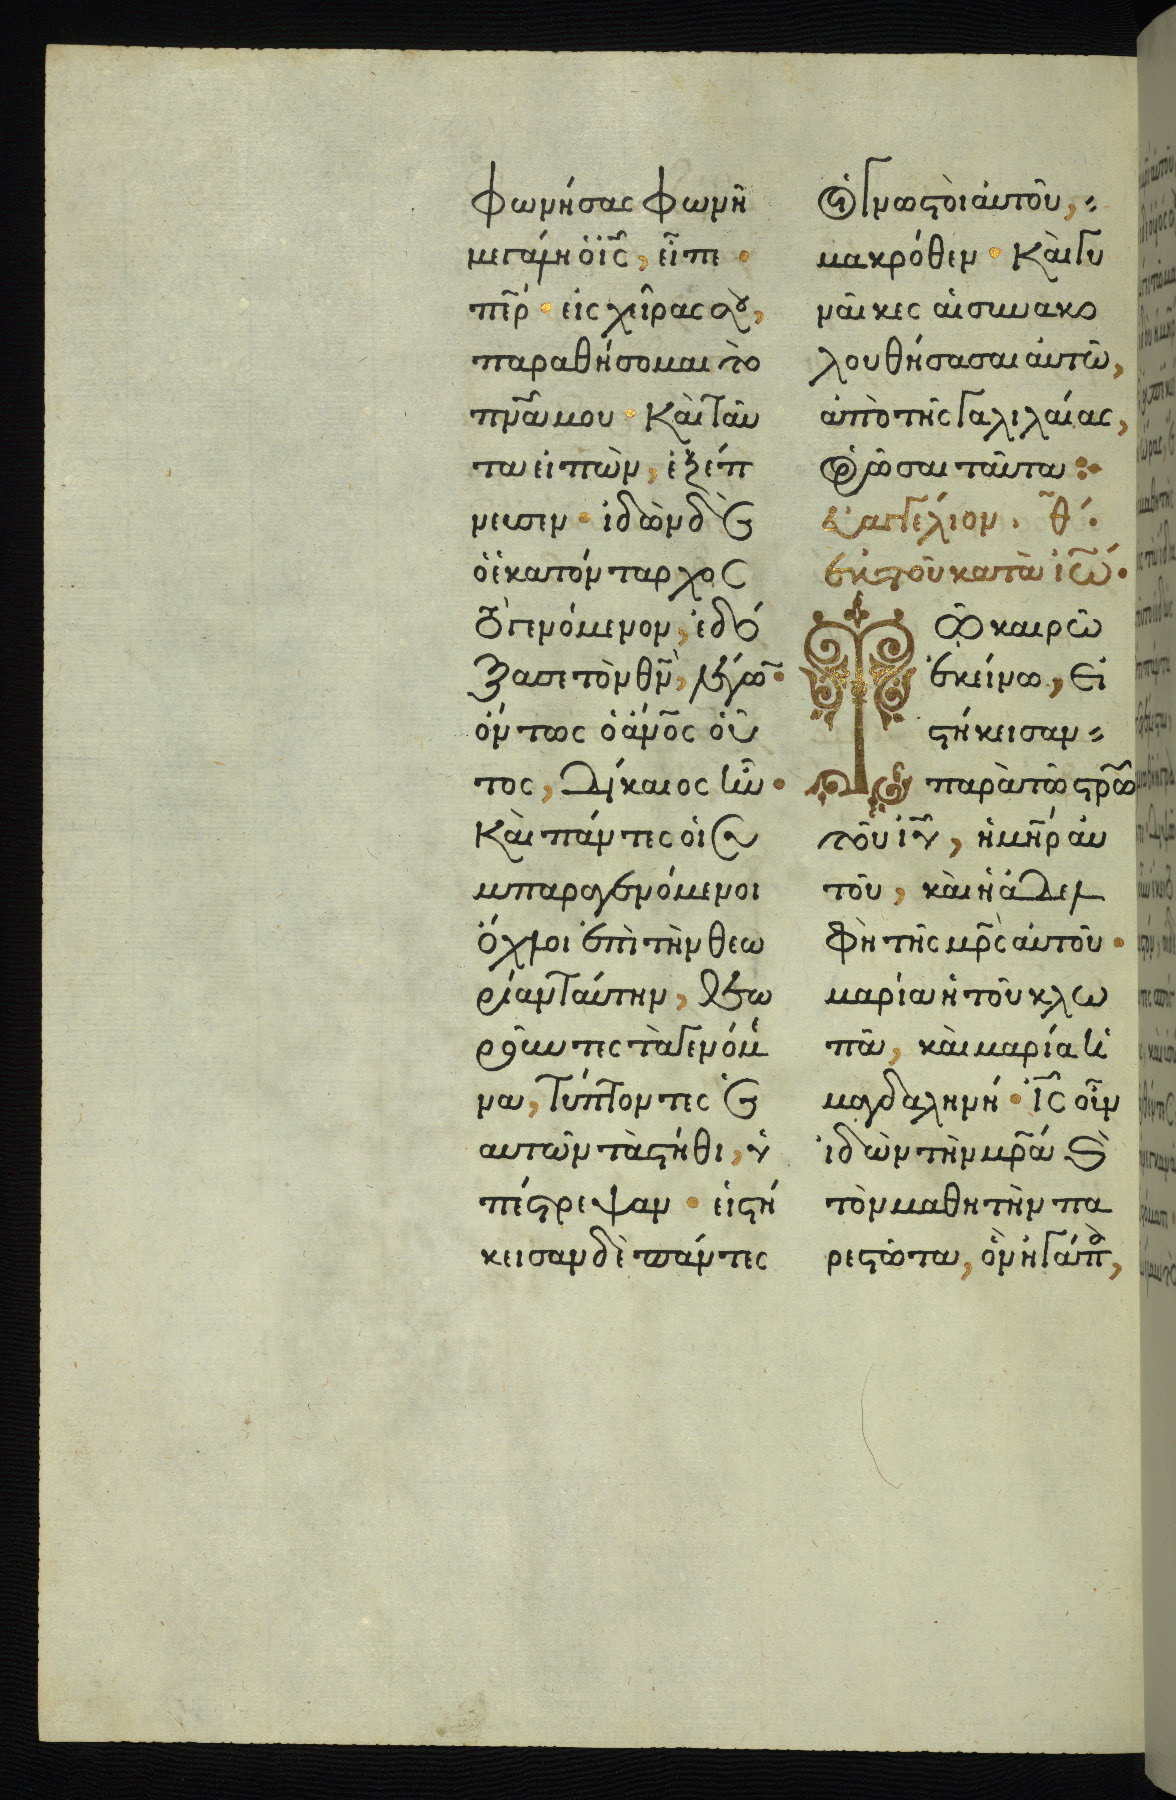 φωνήσας φωνῆ
μεγάλη ὁ ἰ̅ς̅, εἶπε ·
πε̅ρ · εἰς χεῖρας σου,
παραθήσομαι τὸ
πν̅α μου · Καὶ ταῦ
τα εἰπὼν, ἐξέπ
νευσεν · ἰδὼν δὲ
ὁ ἑκατόνταρχος
τὸ γενόμενον, ἐδό
ξασε τὸν θν̅, λέγων ·
ὄντως ὁ ἄνο̅ς οὗ
τος, δίκαιος ἦν ·
Καὶ πάντες οἱ συ
μπαραγενόμενοι
ὄχλοι ἐπὶ τὴν θεω
ρίαν ταύτην, θεω
ροῦντες τὰ γενόμε
να, τύπτοντες ἑ
αυτῶν τὰ στήθι, ὑ
πέστρεψαν · εἱστή
κεισαν δὲ πάντες
οἱ γνωστοὶ αὐτοῦ,
μακρόθεν · Καὶ γυ
ναῖκες αἱ συνακο
λουθήσασαι αὐτῶ,
ἀπὸ τῆς Γαλιλαίας,
ὁρῶσαι ταῦτα :·
εὐαγγέλιον. θ ·
ἐκ τοῦ κατὰ ἰω̅ ·
Τῶ καιρῶ
ἐκείνω, εἱ
στήκεισαν
παρὰ τῶ στρ̅ω
τοῦ ἰ̅υ̅, ἡ μη̅ρ αὐ
τοῦ, καὶ ἡ ἀδελ
φὴ τῆς μρ̅ς αὐτοῦ ·
μαρία ἡ τοῦ κλω
πᾶ, καὶ μαρία ἡ
μαγδαληνή · ἰ̅ς̅ οὖν
ἰδὼν τὴν μρ̅α καὶ
τὸν μαθητὴν πα
ρεστῶτα, ὃν ἠγάπα,